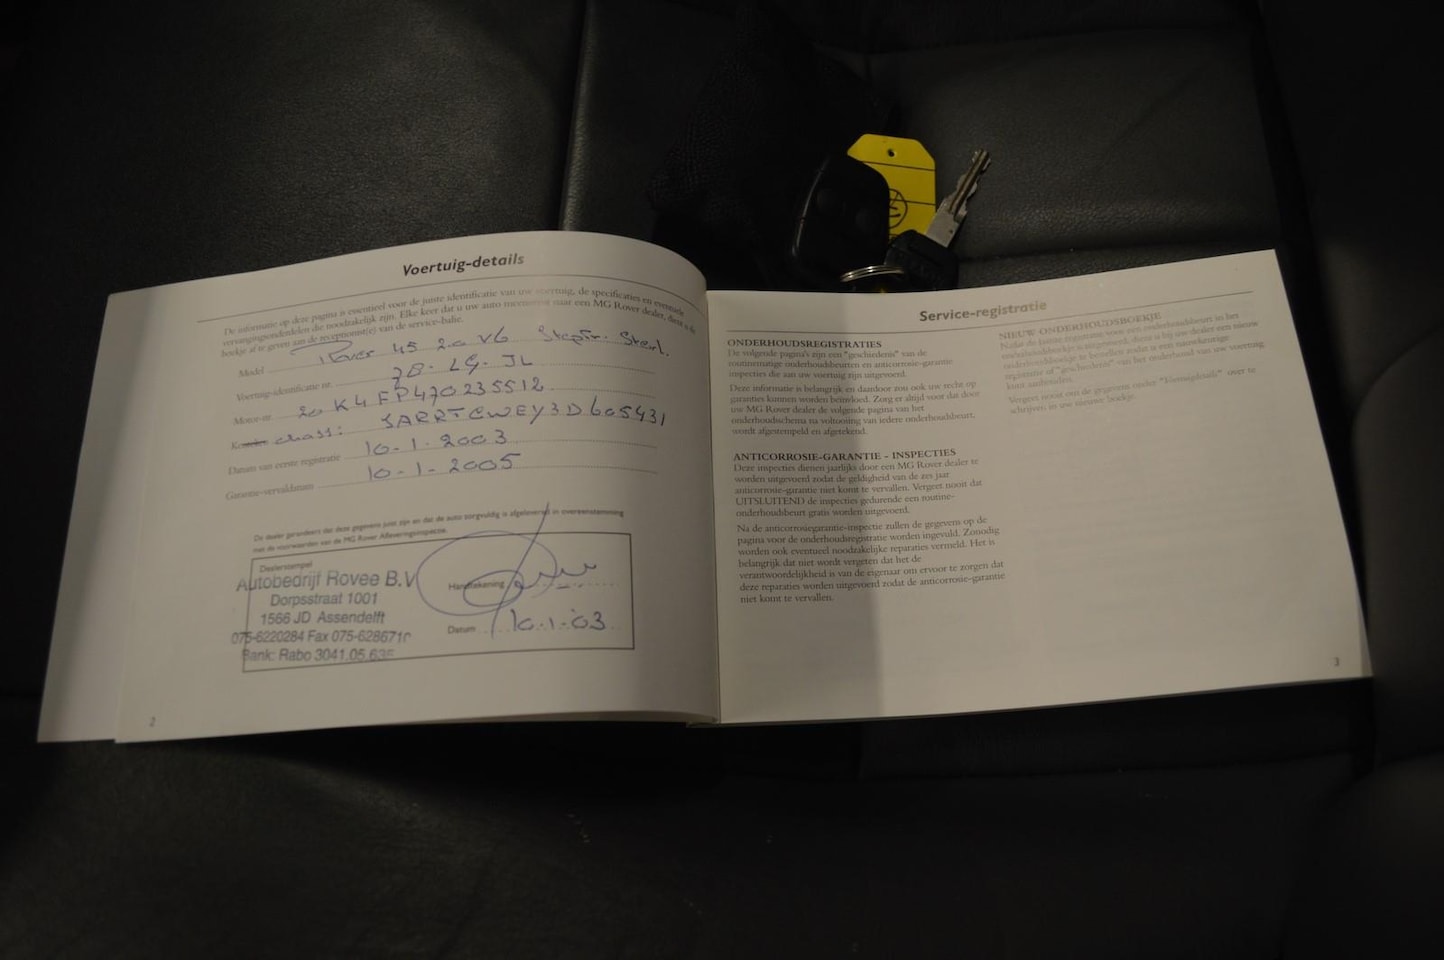 Voertuig-details
De informatie op deze pagina is essentieel voor de juiste identificatie van uw voertuig, de specificaties en eventuele
vervangingsonderdelen die noodzakelijk zijn. Elke keer dat u uw auto meeneemt naar een MG Rover dealer, dient u dit
boekje af te geven aan de receptionist(e) van de service-balie.
Model Rover 45 2.0 V6 Steptr. Sterl.
Voertuig-identificatie nr. 78-LG-JL
Motor-nr. 20K4FP470235512
chassi: SARRTCWEY3D605431
Datum van eerste registratie 10-1-2003
Garantie-vervaldatum 10-1-2005
De dealer garandeert dat deze gegevens juist zijn en dat de auto zorgvuldig is afgeleverd in overeenstemming
met de voorwaarden van de MG Rover Afleveringsinspectie.
Dealerstempel
Autobedrijf Rovee B.V
Dorpsstraat 1001
1566 JD Assendelft
075-6220284 Fax 075-628671
Bank: Rabo 3041.05.635
Handtekening
Datum 10-1-'03
2
Service-registratie
ONDERHOUDSREGISTRATIES
De volgende pagina's zijn een "geschiedenis" van de
routinematige onderhoudsbeurten en anticorrosie-garantie
inspecties die aan uw voertuig zijn uitgevoerd.
Deze informatie is belangrijk en daardoor zou ook uw recht op
garanties kunnen worden beïnvloed. Zorg er altijd voor dat door
uw MG Rover dealer de volgende pagina van het
onderhoudsschema na voltooiing van iedere onderhoudbeurt,
wordt afgestempeld en afgetekend.
ANTICORROSIE-GARANTIE - INSPECTIES
Deze inspecties dienen jaarlijks door een MG Rover dealer te
worden uitgevoerd zodat de geldigheid van de zes jaar
anticorrosie-garantie niet komt te vervallen. Vergeet nooit dat
UITSLUITEND de inspecties gedurende een routine-
onderhoudbeurt gratis worden uitgevoerd.
Na de anticorrosiegarantie-inspectie zullen de gegevens op de
pagina voor de onderhoudsregistratie worden ingevuld. Zonodig
worden ook eventueel noodzakelijke reparaties vermeld. Het is
belangrijk dat niet wordt vergeten dat het de
verantwoordelijkheid is van de eigenaar om ervoor te zorgen dat
deze reparaties worden uitgevoerd zodat de anticorrosie-garantie
niet komt te vervallen.
NIEUW ONDERHOUDSBOEKJE
Nadat de laatste registratie voor een onderhoudsbeurt in het
onderhoudsboekje is uitgevoerd, dient u bij uw dealer een nieuw
onderhoudsboekje te bestellen zodat u een nauwkeurige
registratie of "geschiedenis" van het onderhoud van uw voertuig
kunt aanhouden.
Vergeet nooit om de gegevens onder "Voertuigdetails" over te
schrijven in uw nieuwe boekje.
3